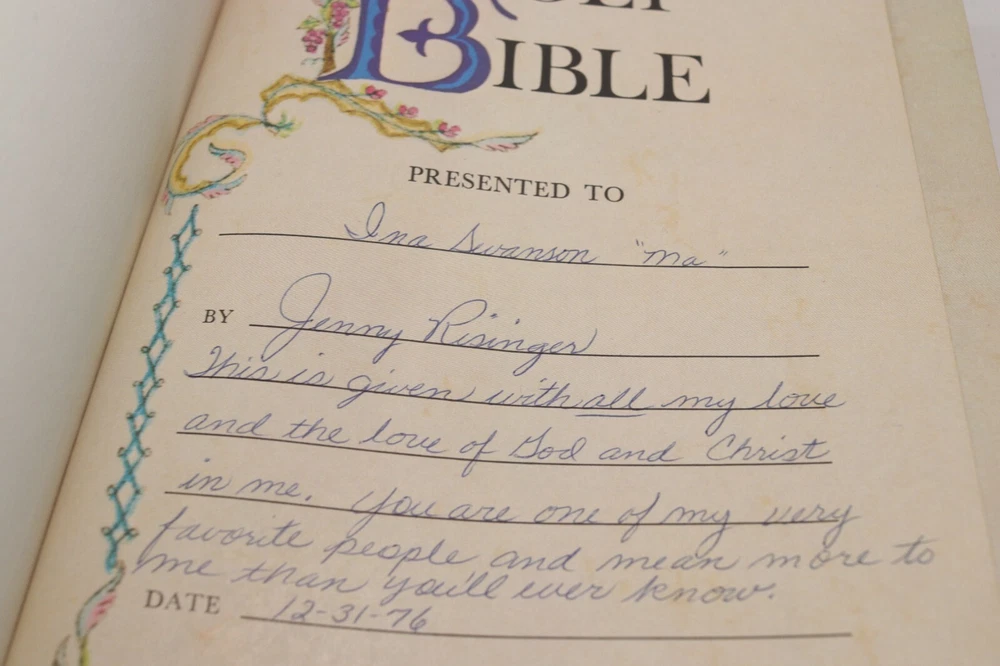 BIBLE
PRESENTED TO
Ina Swanson "Ma"
BY Jenny Risinger
This is given with all my love
and the love of God and Christ
in me. You are one of my very
favorite people and mean more to
me than you'll ever know.
DATE 12-31-76